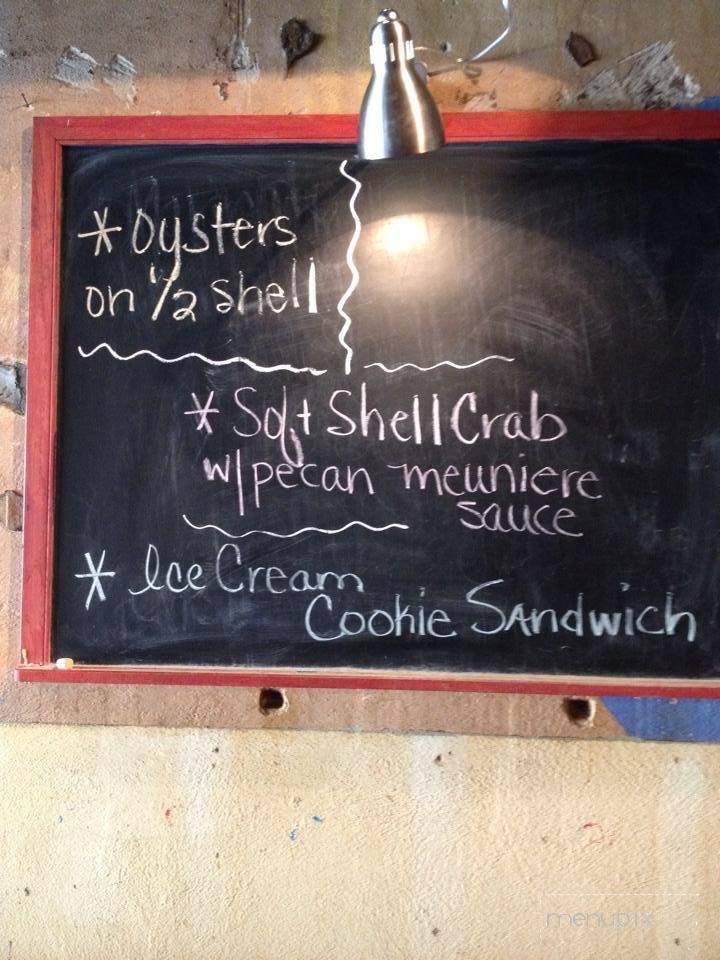 * Oysters
on 1/2 shell
* Soft Shell Crab
w/pecan meuniere
sauce
* Ice Cream
Cookie Sandwich
menupix